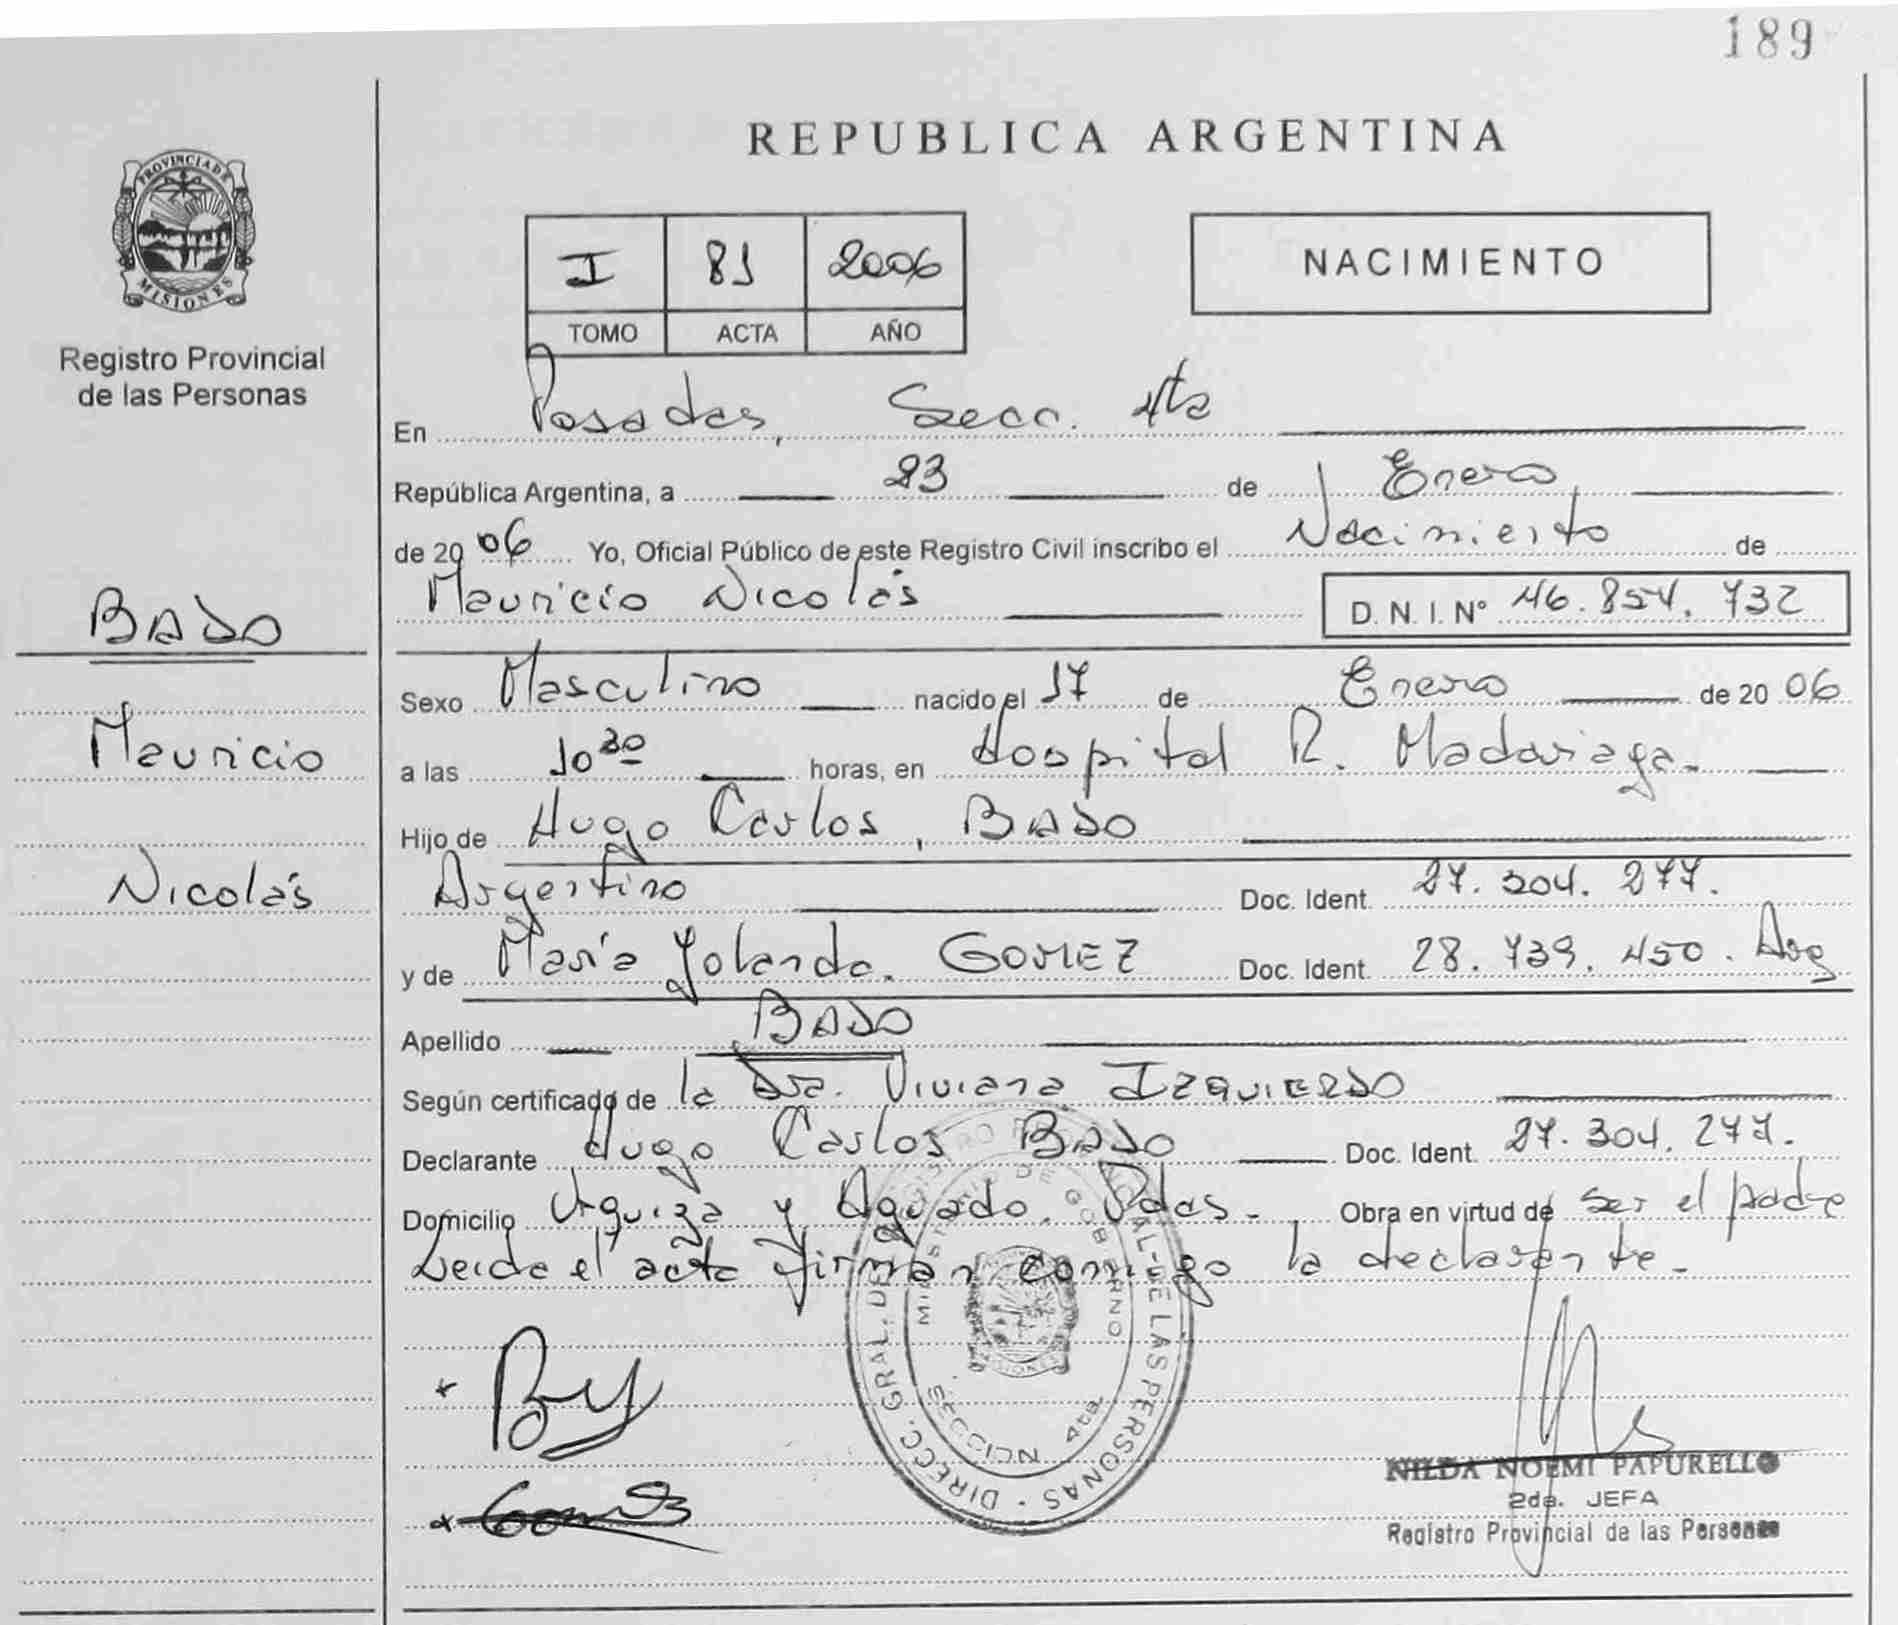 189
PROVINCIA DE
MISIONES
Registro Provincial
de las Personas
REPUBLICA ARGENTINA
I 81 2006
TOMO ACTA AÑO
NACIMIENTO
En Posadas, Secc. 4ta
República Argentina, a 23 de Enero,
de 2006 Yo, Oficial Público de este Registro Civil inscribo el Nacimiento de
Mauricio Nicolás D. N. I. Nº 46.854.732
BADO
Mauricio
Nicolás
Sexo Masculino nacido el 17 de Enero de 2006
a las 10 30 horas, en Hospital R. Madariaga.
Hijo de Hugo Carlos, BADO
Argentino Doc. Ident. 27.304.277.
y de María Yolanda. GOMEZ Doc. Ident. 28.739.450. Arg
Apellido BADO
Según certificado de la Dra. Viviana IZQUIERDO
Declarante Hugo Carlos BADO Doc. Ident. 27.304.277.
Domicilio Urquiza y Aguado. Pdas. Obra en virtud de ser el padre
Leida el acta firman conmigo la declarante.
DIRECC. GRAL. DEL REGISTRO PROVINCIAL DE LAS PERSONAS
MINISTERIO DE GOBIERNO
SECCION 4ta.
NILDA NOEMI PAPURELLO
2da. JEFA
Registro Provincial de las Personas